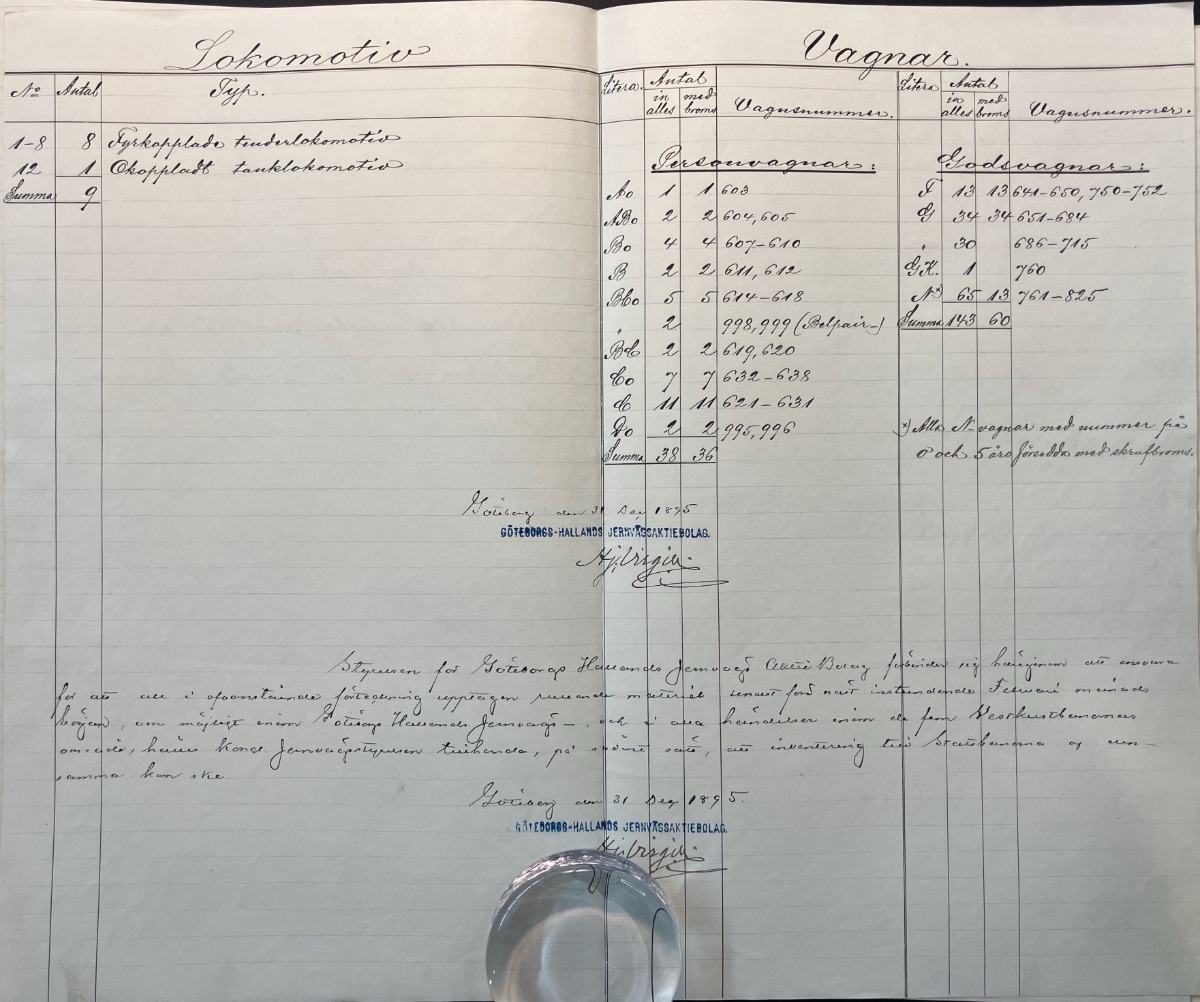 Lokomotiv
No Antal Typ.
1-8 8 Fyrkopplade tenderlokomotiv
12 1 Okoppladt tanklokomotiv
Summa 9
Vagnar.
Litera. Antal Vagnsnummer.
in alles med broms
Personvagnar:
Ao 1 1 603
ABo 2 2 604,605
Bo 4 4 607-610
B 2 2 611,612
BCo 5 5 614-618
„ 2 998,999 (Belpair-)
BC 2 2 619,620
Co 7 7 632-638
C 11 11 621-631
Do 2 2 995,996
Summa 38 36
Litera Antal Vagnsnummer.
in alles med broms
Godsvagnar:
F 13 13 641-650, 750-752
G 34 34 651-684
„ 30 686-715
GK. 1 760
N x) 65 13 761-825
Summa 143 60
x) Alla N-vagnar med nummer på
0 och 5 äro försedda med skrufbroms.
Göteborg den 31 Dec 1895
GÖTEBORGS-HALLANDS JERNVÄGSAKTIEBOLAG.
Hj. Virgin
Styrelsen för Göteborgs Hallands Jernvägs Aktie Bolag förbinder sig härigenom att ansvara
för att all i ofvanstående förteckning upptagen rullande materiel senast före näst instundande Februari månads
början, om möjligt inom Göteborgs Hallands Jernvägs- och i alla händelser inom de fem Vestkustbanornas
område, hålles Kongl Jernvägsstyrelsen tillhanda, på sådant sätt, att inventering till Statsbanorna af den-
samma kan ske.
Göteborg den 31 Dec 1895.
GÖTEBORGS-HALLANDS JERNVÄGSAKTIEBOLAG.
Hj. Virgin